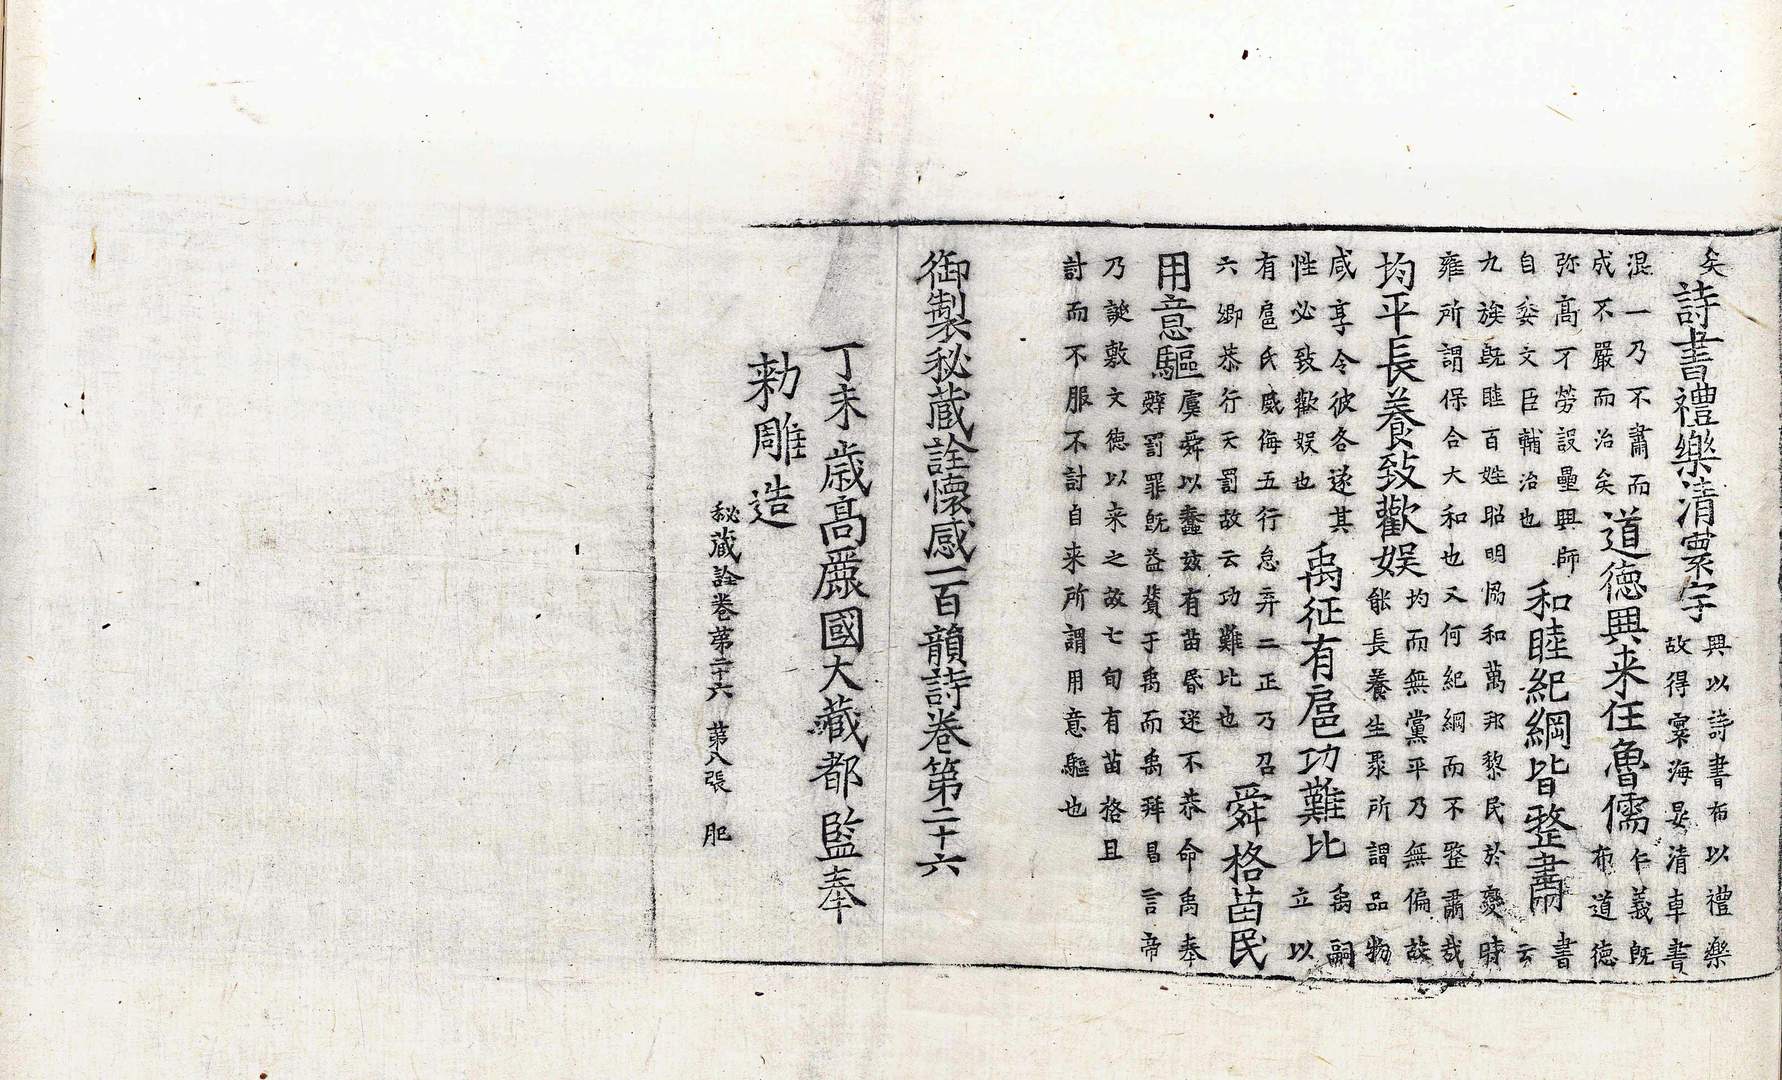 矣詩書禮樂清寰宇興以詩書布以禮樂
故得寰海晏清車書
混一乃不肅而
成不嚴而治矣道德興来任魯儒仁義既
布道德
弥高不勞設壘興師
自委文臣輔治也和睦紀綱皆整肅書
云
九族既睦百姓昭明恊和萬邦黎民於變時
雍所謂保合大和也又何紀綱而不整肅哉
均平長養致歡娱均而無黨平乃無偏故
能長養生聚所謂品物
咸亨令彼各遂其
性必致歡娱也禹征有扈功難比禹嗣
立以
有扈氏威侮五行怠弃二正乃召
六卿恭行天罰故云功難比也舜格苗民
用意驅虞舜以蠢兹有苗昏迷不恭命禹奉
辤罰罪既益賛于禹而禹拜昌言帝
乃誕敷文德以来之故七旬有苗格且
討而不服不討自来所謂用意驅也
御製秘蔵詮懐感一百韻詩卷第二十六
丁未歳高麗國大藏都監奉
勅雕造
秘蔵詮卷第二十六 第八張 肥